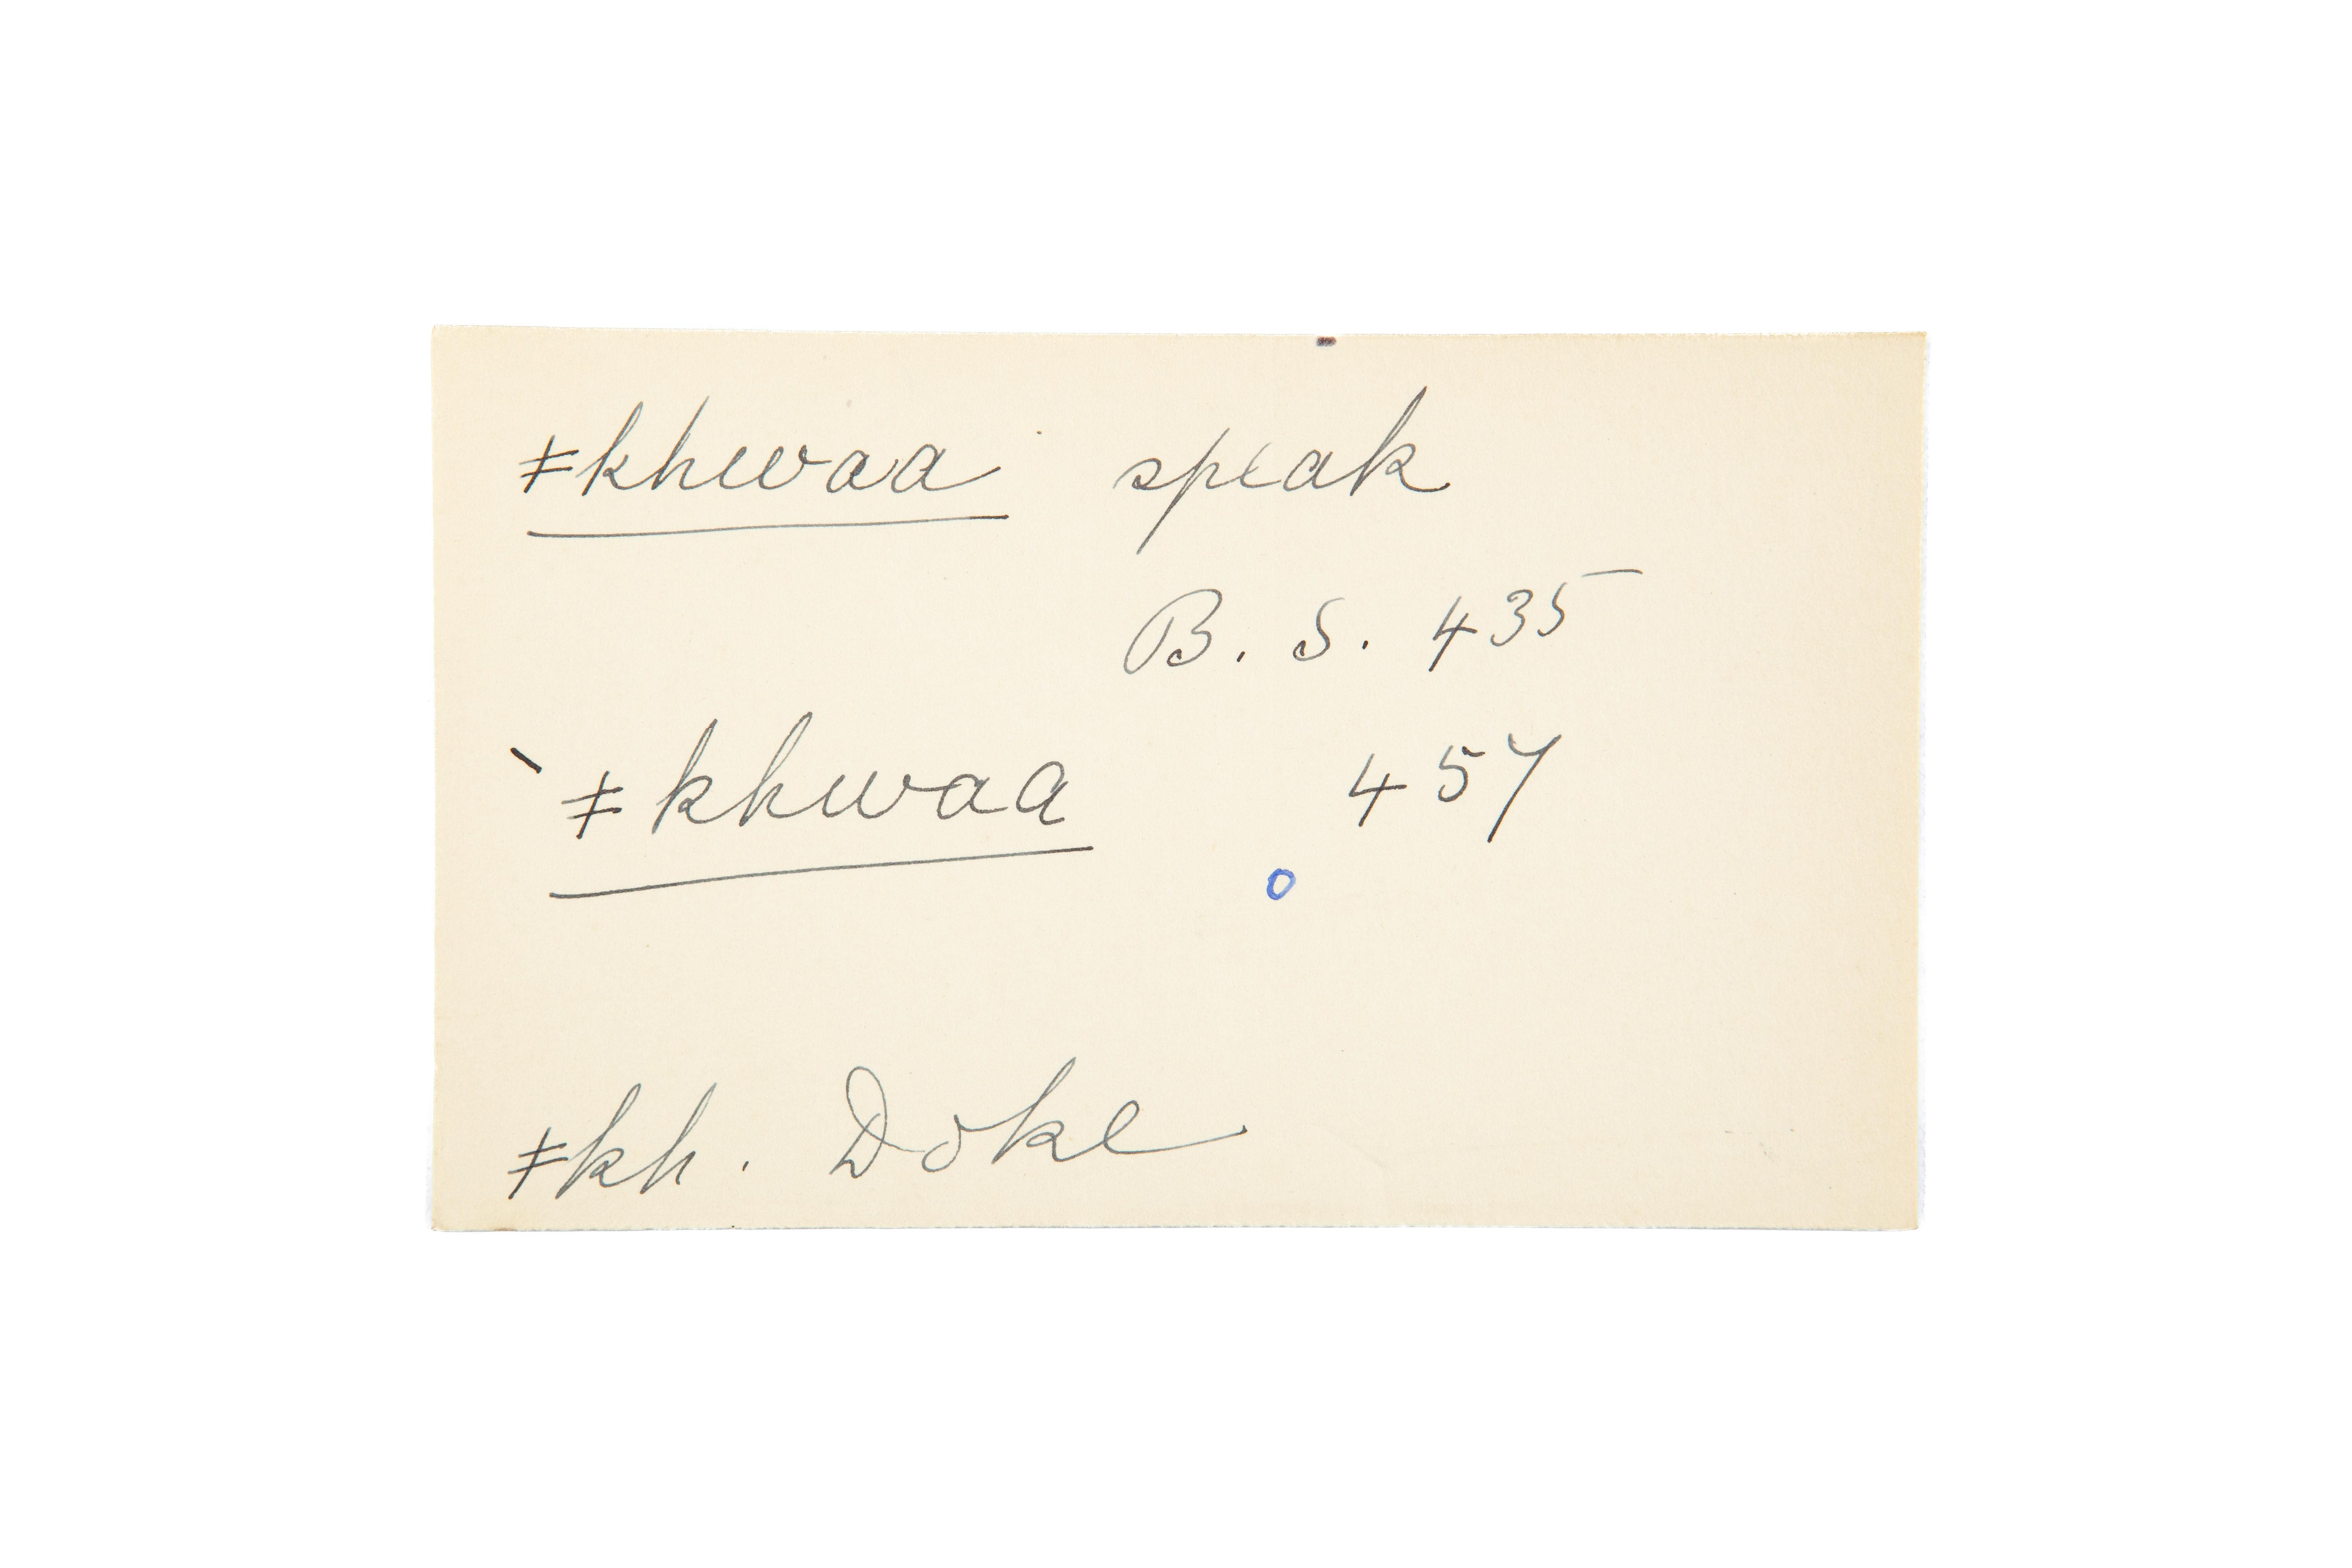 ǂkhwaa speak
B. S. 435
ˋǂkhwaa 457
o
ǂkh. Doke